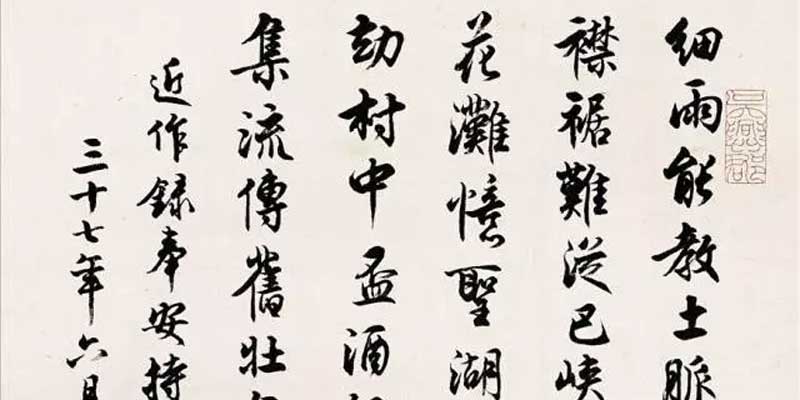 細雨能教土脈
襟裾難從巴峽
花灘憶聖湖
劫村中盃酒
集流傳舊壯
近作録奉安持
三十七年六月